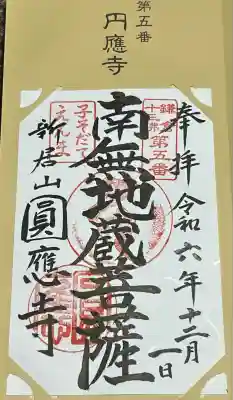 第五番
円應寺
奉拝 令和六年十二月一日
鎌倉
十三佛
第五番
南無地蔵菩薩
子そだて
えんま
新居山圓應寺